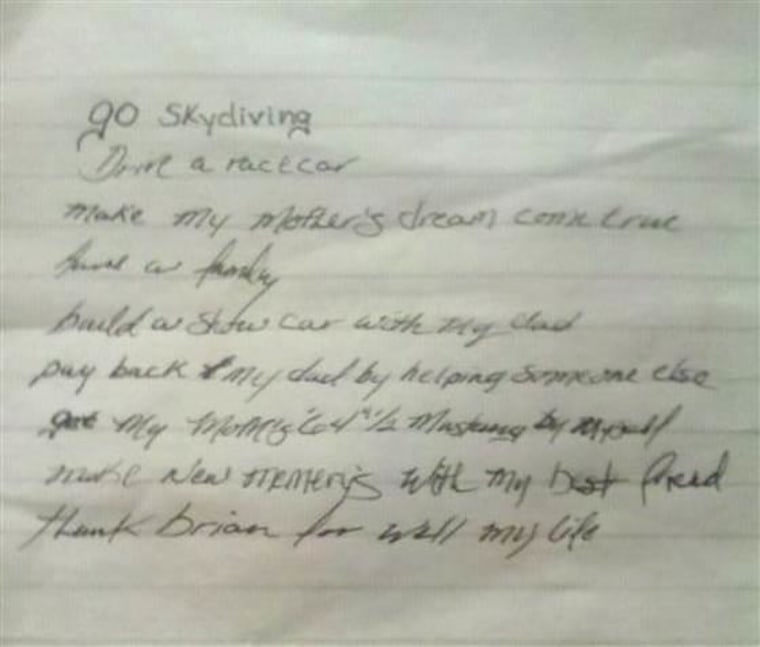 go Skydiving
Drive a racecar
make my Mother's dream come true
have a family
build a show car with my dad
pay back my dad by helping someone else
get my Mom's '64 1/2 Mustang by myself
make New memery's with my best freind
thank brian for my life